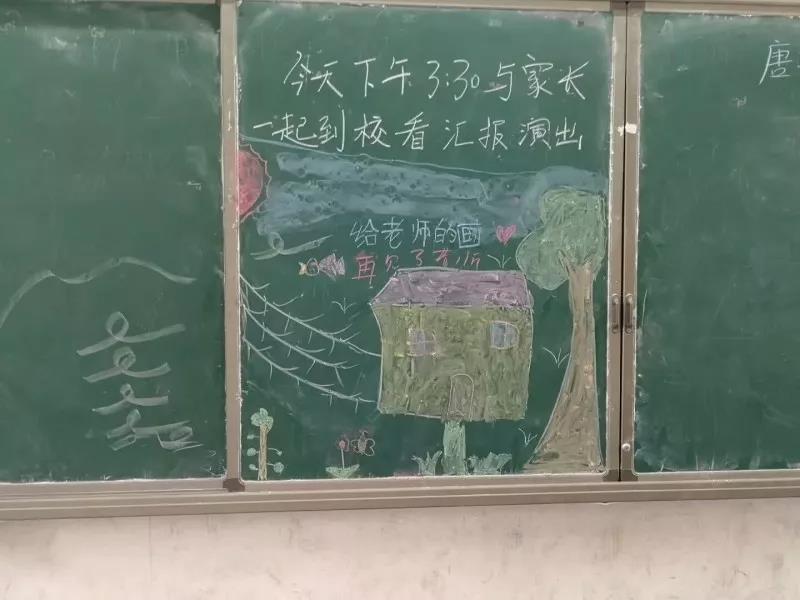 今天下午3:30与家长
一起到校看汇报演出
给老师的画
再见了老师
唐